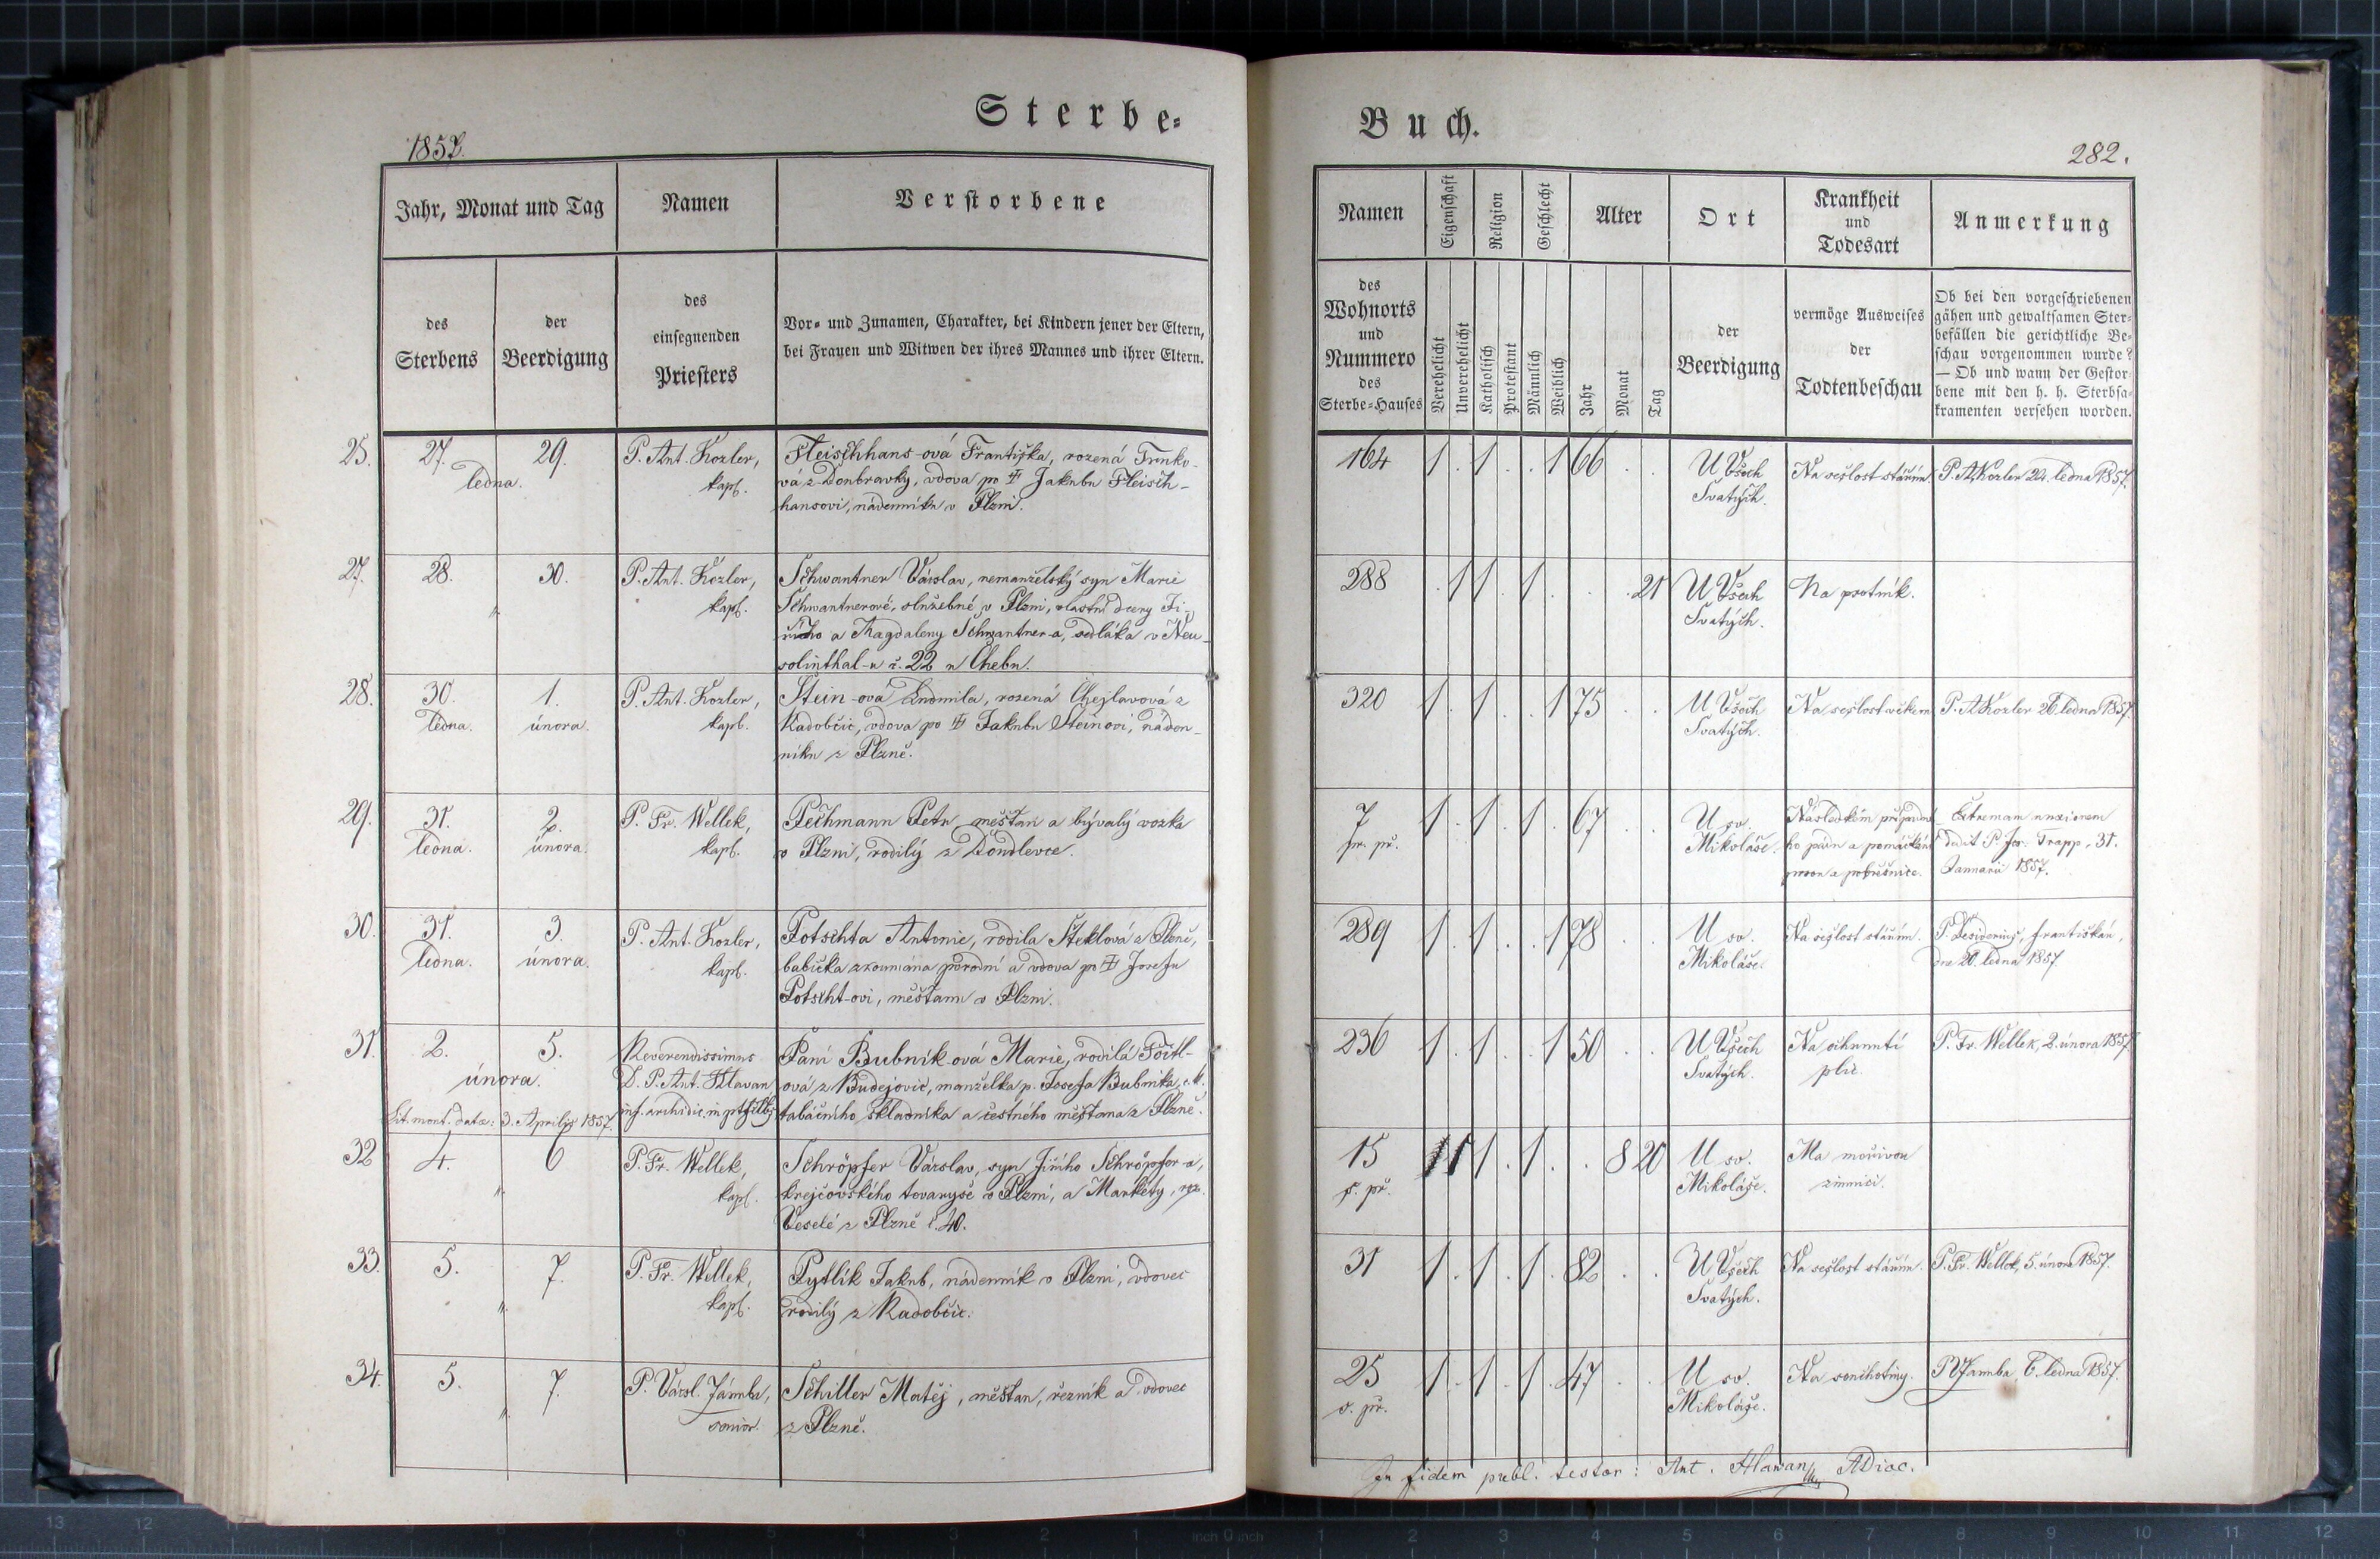 Sterbe=
1857.
Jahr, Monat und Tag
Namen
Verstorbene
des
Sterbens
der
Beerdigung
des
einsegnenden
Priesters
Vor= und Zunamen, Charakter, bei Kindern jener der Eltern,
bei Frauen und Witwen der ihres Mannes und ihrer Eltern.
25. 27. 29.
ledna.
P. Ant. Kozler,
kapl.
Fleischhans-ová Františka, rozená Trnko-
vá z Doubravky, vdova po Jakubu Fleisch-
hansovi, nádenníku v Plzni.
27. 28. 30.
"
P. Ant. Kozler,
kapl.
Schwantner Václav, nemanželský syn Marie
Schwantnerové, služebné v Plzni, vlastní dcery Ji-
řího a Magdaleny Schwantner-a, sedláka v Neu-
solinthal-u č. 22 u Chebu.
28. 30. 1.
ledna. února.
P. Ant. Kozler,
kapl.
Stein-ová Ludmila, rozená Chejlavová z
Radobčic, vdova po Jakubu Steinovi, náden-
níku z Plzně.
29. 31. 2.
ledna. února.
P. Fr. Wellek,
kapl.
Pechmann Petr měšťan a bývalý vozka
v Plzni, rodilý z Dondlevce.
30. 31. 3.
ledna. února.
P. Ant. Kozler,
kapl.
Potschta Antonie, rodila Steklová z Plzně,
babička zkoumána porodní a vdova po Josefu
Potscht-ovi, měšťanu v Plzni.
31. 2. 5.
února.
Lit. mort. datæ: 3. Aprilis 1857.
Reverendissimus
D. P. Ant. Hlavan
inf. archidic. in
Paní Bubník-ová Marie, rodilá
ová z Budějovic, manželka p. Josefa Bubníka, c. k.
tabáčního skladníka a čestného měšťana z Plzně.
32 4. 6
"
P. Fr. Wellek,
kapl.
Schröpfer Václav, syn Jiřího Schröpfer-a,
krejčovského tovaryše v Plzni, a Markéty, roz.
Veselé z Plzně č. 40.
33. 5. 7.
"
P. Fr. Wellek,
kapl.
Pytlík Jakub, nádenník v Plzni, vdovec
rodilý z Radobčic.
34. 5. 7.
"
P. Vácsl. Jármba,
senior.
Schiller Matěj, měšťan, řezník a vdovec
z Plzně.
Buch.
282.
Namen
Eigenschaft
Religion
Geschlecht
Alter
Ort
Krankheit
und
Todesart
Anmerkung
des
Wohnorts
und
Nummero
des
Sterbe=Hauses
Verehelicht
Unverehelicht
Katholisch
Protestant
Männlich
Weiblich
Jahr
Monat
Tag
der
Beerdigung
vermöge Ausweises
der
Todtenbeschau
Ob bei den vorgeschriebenen
gähen und gewaltsamen Ster=
befällen die gerichtliche Be=
schau vorgenommen wurde?
— Ob und wann der Gestor=
bene mit den h. h. Sterbsa=
kramenten versehen worden.
164 1 . 1 . . 1 66 . .
U Všech
Svatých.
Na sešlost stářím.
P. A. Kozler 24. ledna 1857.
288 . 1 1 . 1 . . . 21
U Všech
Svatých.
Na psotník.
320 1 . 1 . . 1 75 . .
U Všech
Svatých.
Na sešlost věkem
P. A Kozler 26. ledna 1857.
7 1 . 1 . 1 . 67 . .
pr. př.
U sv.
Mikoláše.
Následkem
ho pádu a
a pobřišnice.
Extremam unxionem
dedit P. Jos. Trapp, 31.
Januarii 1857.
289 1 . 1 . . 1 78 . .
U sv.
Mikoláše.
Na sešlost stářím.
P. Desiderius, františkán,
dne 20. ledna 1857
236 1 . 1 . . 1 50 . .
U Všech
Svatých.
Na ochrnutí
plic.
P. Fr. Wellek, 2. února 1857.
15 1 1 . 1 . . 8 20
s. př.
U sv.
Mikoláše.
Na
zimnici.
31 1 . 1 . 1 . 82 . .
U Všech
Svatých.
Na sešlost stářím.
P. Fr. Wellek, 5. února 1857.
25 1 . 1 . 1 . 47 . .
s. př.
U sv.
Mikoláše.
Na souchotiny.
P V Jarmba, 6. ledna 1857.
In fidem publ. testor: Ant. Hlavan ADiac.